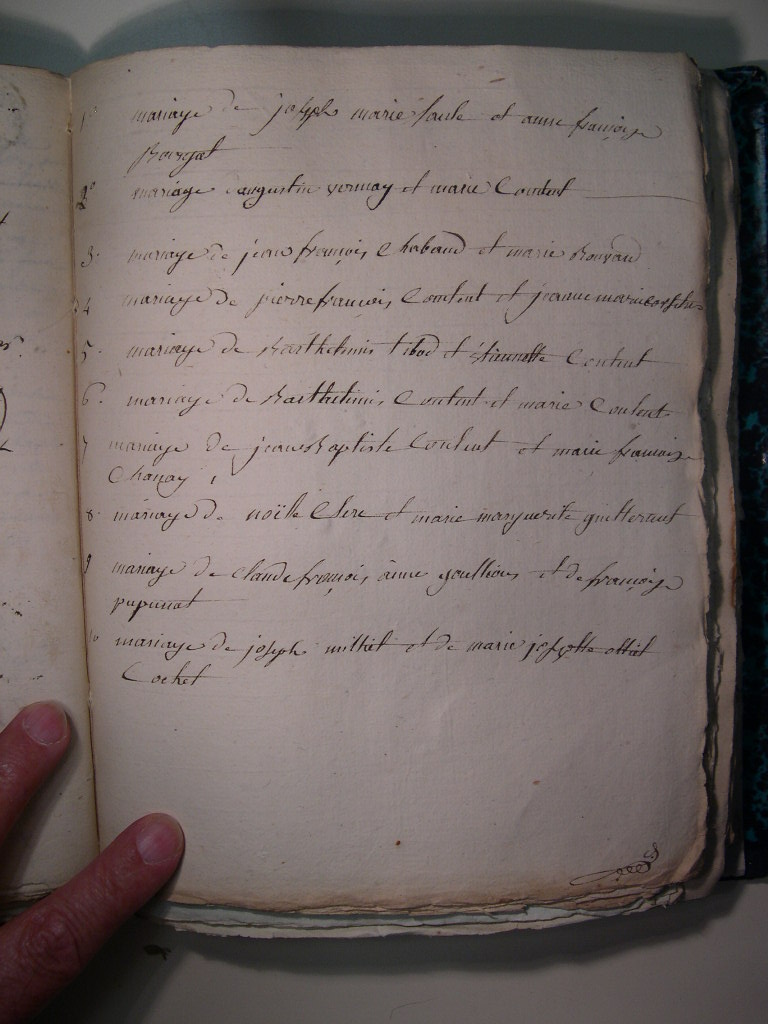 1° mariage de joseph marie faule et anne françoise
Bouvat
2° mariage augustin vernay et marie Content
3. mariage de jean françois Chabaud et marie Bouvard
4 mariage de pierre françois Content et jeanne marie
5. mariage de Barthelimis tibod et étiennette Content
6. mariage de Barthelimis Content et marie Content
7 mariage de jean Baptiste Content et marie françoise
Chanay
8. mariage de noëlle Clere et marie marguerite guillermet
9 mariage de claude françois, anne goullion et de françoise
pupunat
10 mariage de joseph milliet et de marie josephte
Cochet